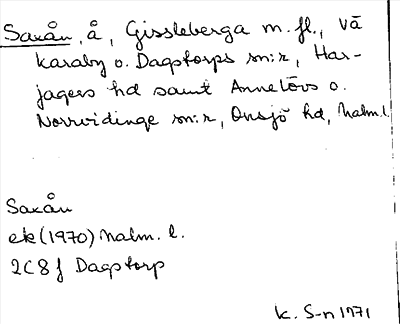 Saxån, å, Gissleberga m.fl., Vä
karaby o. Dagstorps sn:r, Har-
jagers hd samt Annelövs o.
Norrvidinge sn:r, Onsjö hd, Malm.l.
Saxån
ek (1970) Malm. l.
2C8f Dagstorp
k. S-n 1971